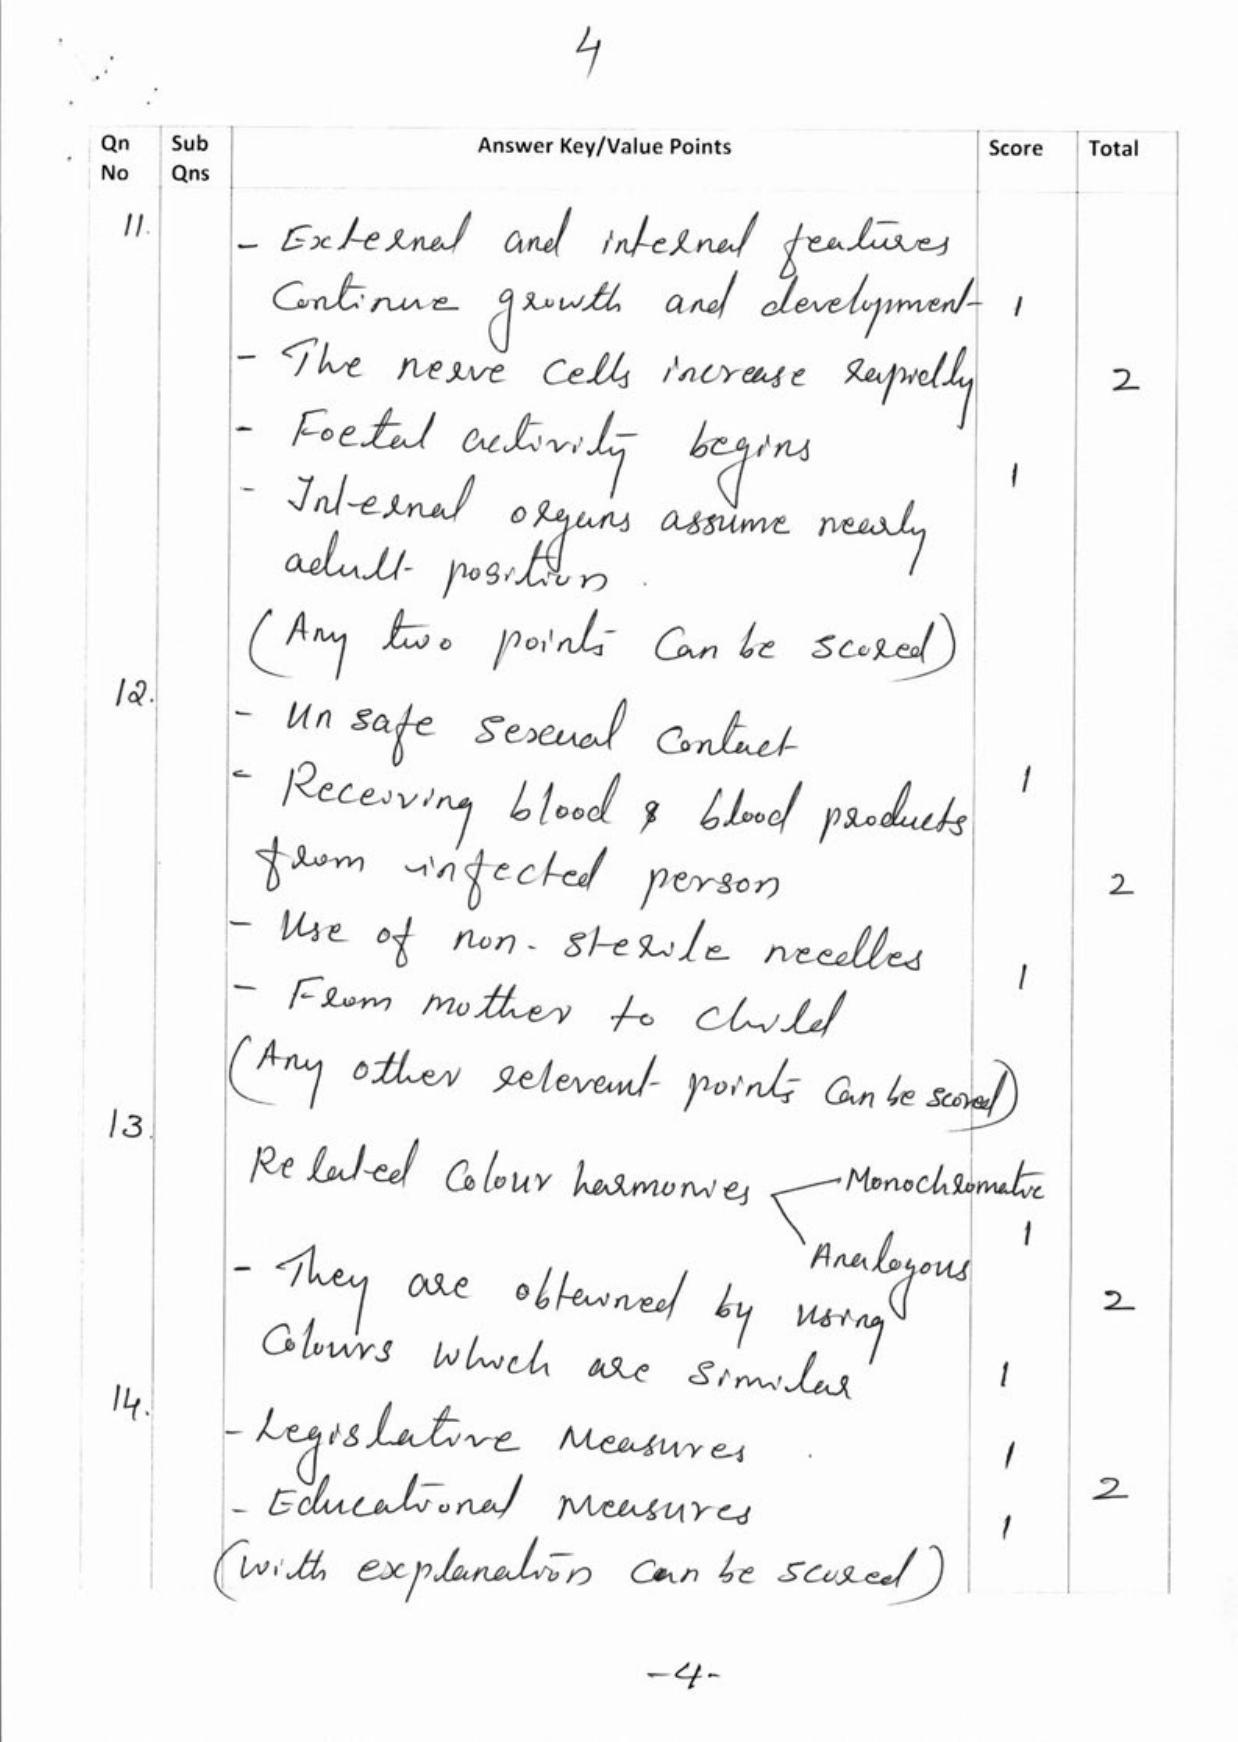 4
Qn No
Sub Qns
Answer Key/Value Points
Score
Total
11.
- External and internal features
Continue growth and development 1
- The nerve cells increase rapidly 2
- Foetal activity begins
1
- Internal organs assume nearly
adult position.
(Any two points Can be scored)
12.
- Un safe sexual Contact
1
- Receiving blood & blood products
from infected person 2
- Use of non-sterile needles
1
- From mother to child
(Any other relevent points Can be scored)
13.
Related Colour harmonies Monochromatic
1
Analogous
- They are obtained by using 2
Colours which are similar 1
14.
- Legislative Measures 1
- Educational Measures 2
1
(with explanation can be scored)
-4-